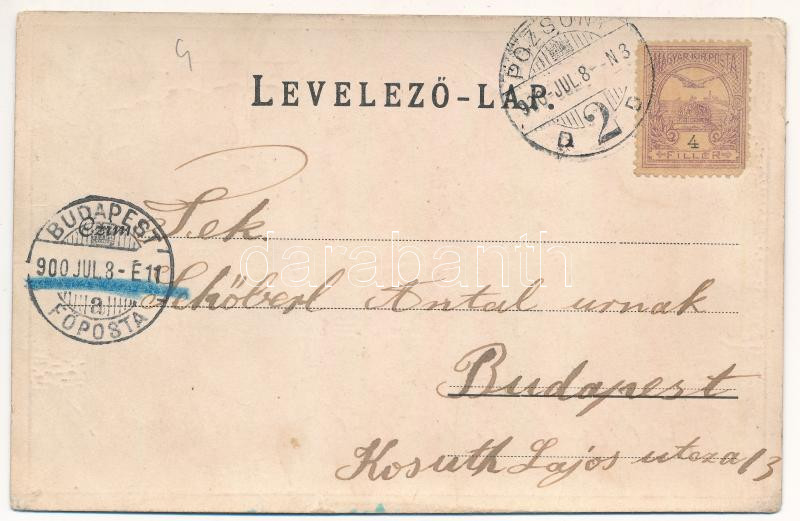 POZSONY
900 JUL. 8 - N 3
D 2 D
MAGYAR KIR. POSTA
4
FILLÉR
LEVELEZŐ-LAP.
BUDAPEST
900 JUL 8 - É 11
a
FŐPOSTA
Czim
Tek.
Schőberl Antal urnak
Budapest
Kosuth Lajos utcza 13
darabanth